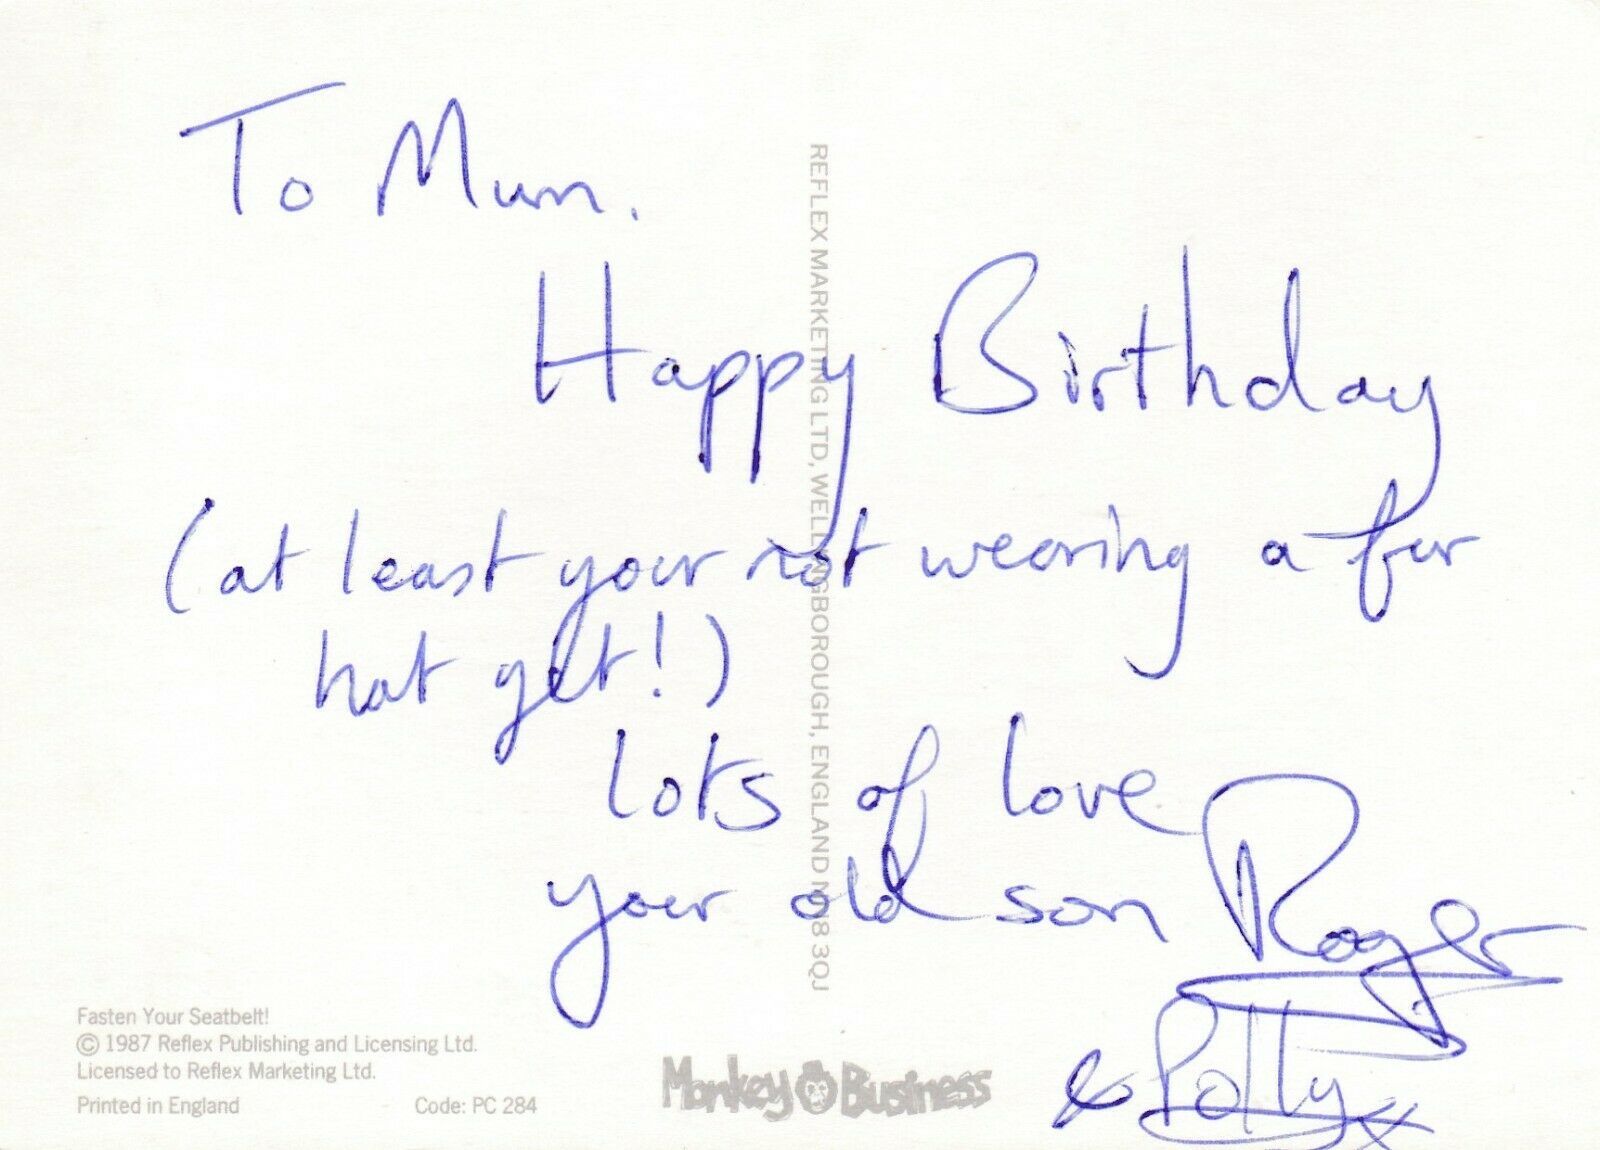 To Mum.
Happy Birthday
(at least your not wearing a fur
hat yet!)
lots of love
your old son Roger
& Polly x
REFLEX MARKETING LTD, WELLINGBOROUGH, ENGLAND NN8 3QJ
Fasten Your Seatbelt!
© 1987 Reflex Publishing and Licensing Ltd.
Licensed to Reflex Marketing Ltd.
Printed in England Code: PC 284
Monkey Business